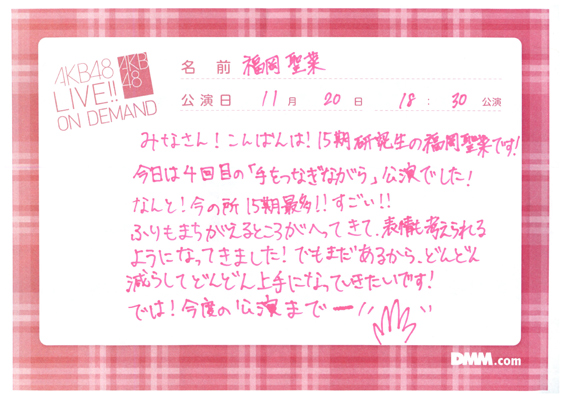 AKB48
LIVE!!
ON DEMAND
AKB
48
名 前 福岡 聖菜
公演日 11 月 20 日 18 : 30 公演
みなさん!こんばんは!15期研究生の福岡聖菜です!
今日は4回目の「手をつなぎながら」公演でした!
なんと!今の所15期最多!!すごい!!
ふりもまちがえるところがへってきて、表情も考えられる
ようになってきました!でもまだあるから、どんどん
減らしてどんどん上手になっていきたいです!
では!今度の公演までー!!
DMM.com